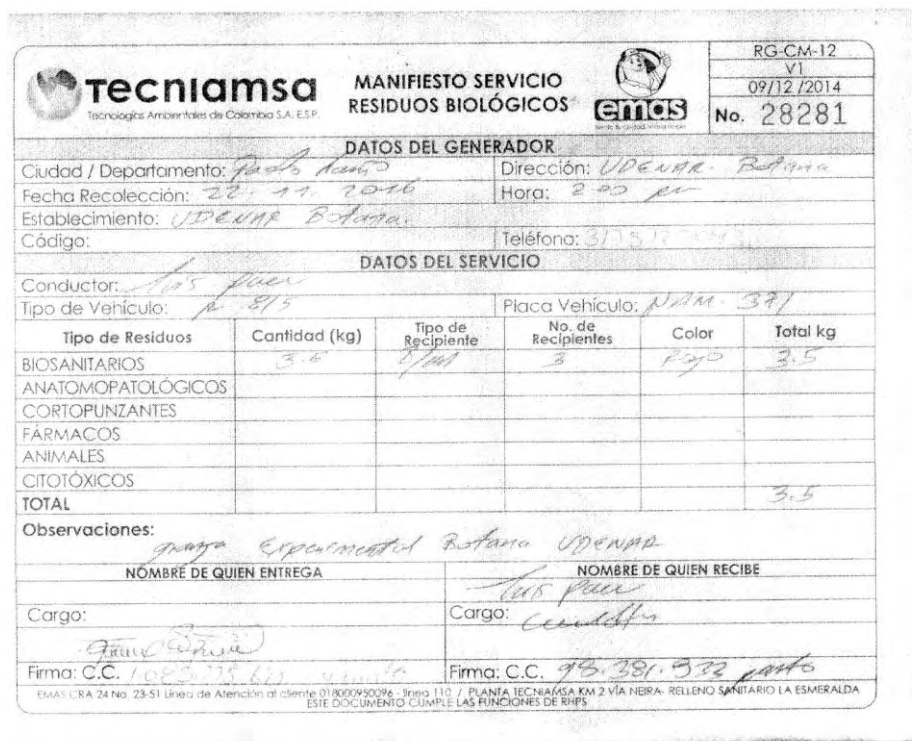 Tecniamsa
Tecnologías Ambientales de Colombia S.A. E.S.P.
MANIFIESTO SERVICIO
RESIDUOS BIOLÓGICOS
emas
RG-CM-12
V1
09/12/2014
No. 28281
DATOS DEL GENERADOR
Ciudad / Departamento: Pasto Nariño Dirección: UDENAR. Botana
Fecha Recolección: 22. 11. 2016 Hora: 2 00 pm
Establecimiento: UDENAR Botana.
Código: Teléfono:
DATOS DEL SERVICIO
Conductor: Luis Paez
Tipo de Vehículo: Placa Vehículo: 371
Tipo de Residuos Cantidad (kg) Tipo de Recipiente No. de Recipientes Color Total kg
BIOSANITARIOS 3.5 3 Rojo 3.5
ANATOMOPATOLÓGICOS
CORTOPUNZANTES
FÁRMACOS
ANIMALES
CITOTÓXICOS
TOTAL 3.5
Observaciones:
granja Experimental Botana UDENAR
NOMBRE DE QUIEN ENTREGA NOMBRE DE QUIEN RECIBE
Luis Paez
Cargo: Cargo:
Firma: C.C. Firma: C.C. 98.381.932 pasto
EMAS CRA 24 No. 23-51 Línea de Atención al cliente 018000950096 - línea 110 / PLANTA TECNIAMSA KM 2 VÍA NEIRA- RELLENO SANITARIO LA ESMERALDA
ESTE DOCUMENTO CUMPLE LAS FUNCIONES DE RHPS